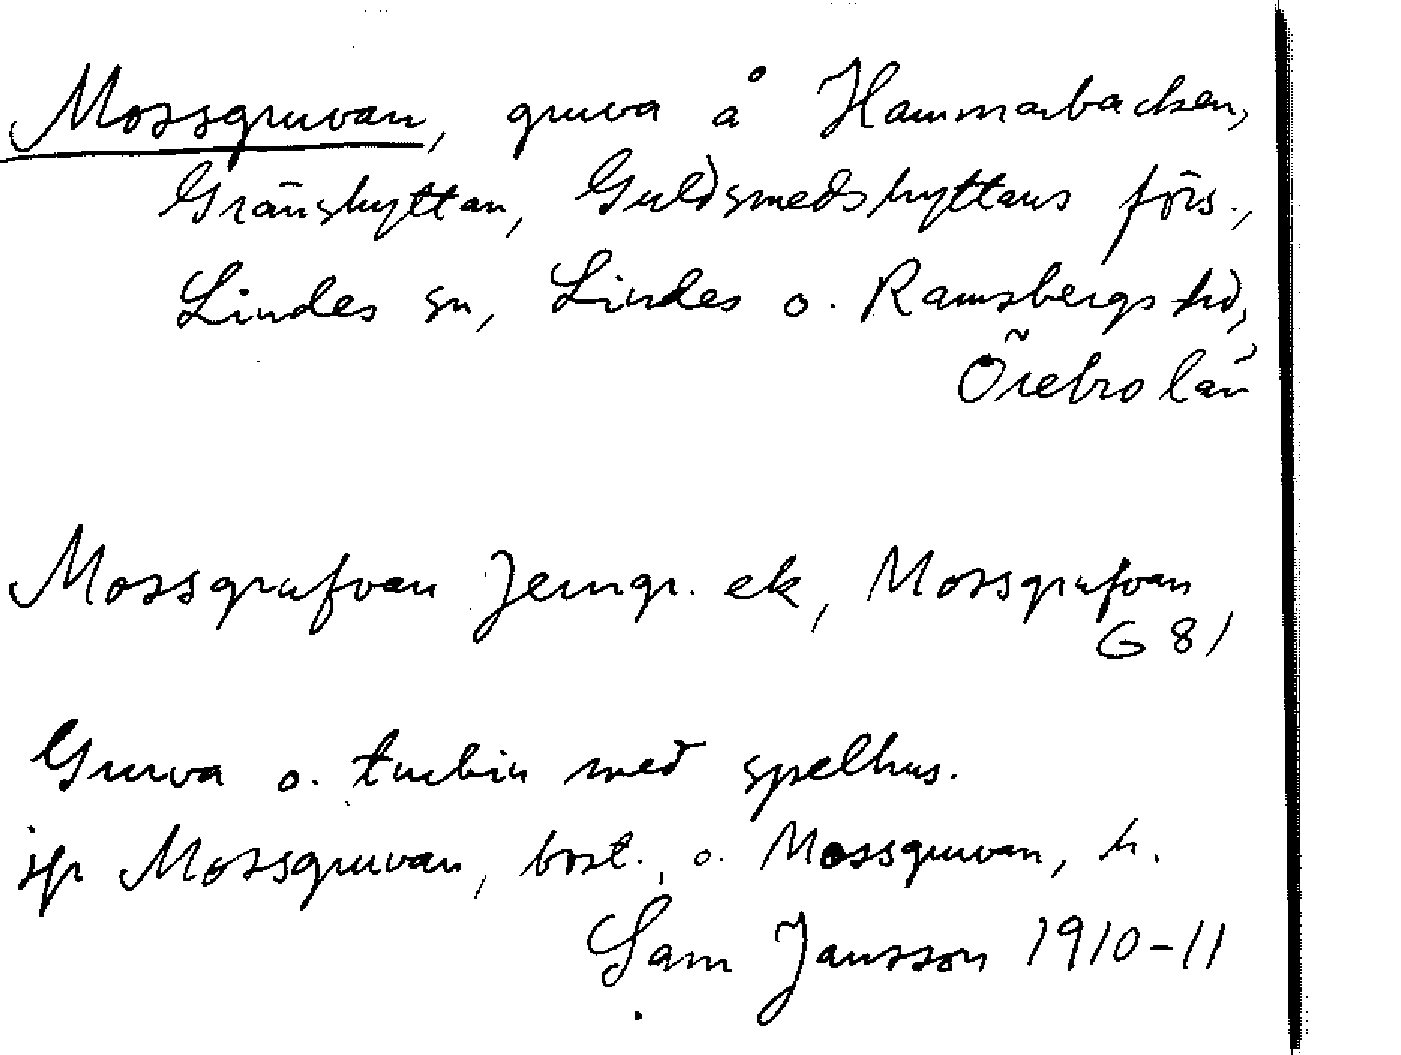 Mossgruvan, gruva å Hammarbacken,
Gränshyttan, Guldsmedshyttans förs.,
Lindes sn, Lindes o. Ramsbergs hd,
Örebro län
Mossgrufvan Jerngr. ek, Mossgrufvan
G 81
Gruva o. turbin med spelhus.
jfr Mossgruvan, bost., o. Mossgruvan, h.
Sam Jansson 1910-11